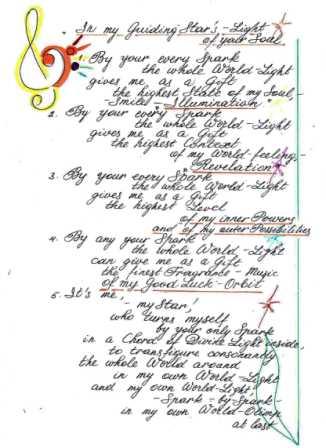 In my Guiding Star's, - Light
of your Soul
1. By your every Spark
the whole World-Light
gives me as a Gift
the highest State of my Soul, -
- Smiles - Illumination
2. By your every Spark
the whole World-Light
gives me as a Gift
the highest Context
of my World-feeling, -
Revelation
3. By your every Spark
the whole World-Light
gives me as a Gift
the highest Level
of my inner Powers
and of my outer Possibilities
4. By any your Spark
the whole World-Light
can give me as a Gift
the finest Fragrance - Music
of my Good Luck - Orbit
5. It's me,
- my Star,
who turns myself
by your only Spark
in a Chord of Divine Light inside,
to transfigure consonantly
the whole World around
in my own World-Light
and my own World-Light,
- Spark - by - Spark -
in my own World-Olimp
at last